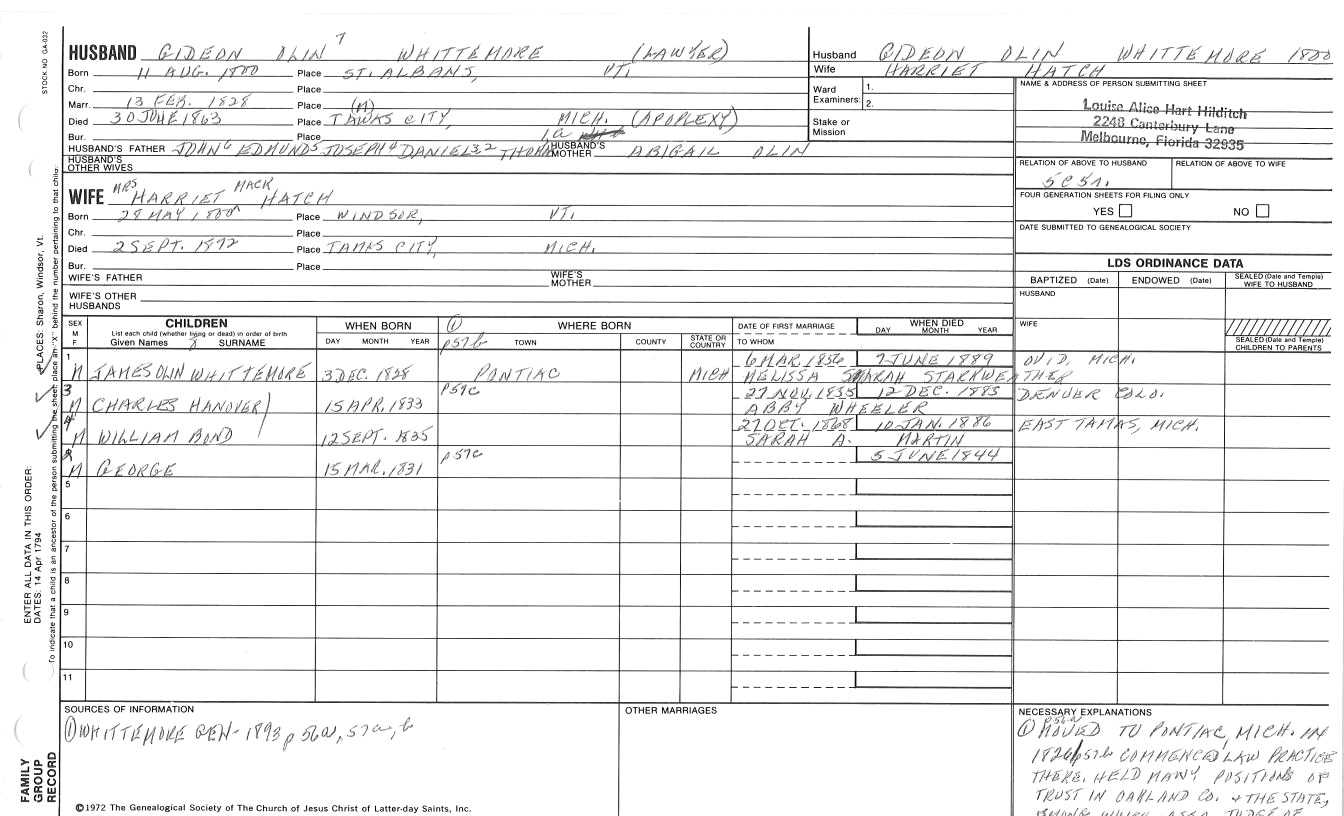 STOCK NO. GA-032
HUSBAND GIDEON OLIN 7 WHITTEMORE (LAWYER)
Born 11 AUG. 1800 Place ST. ALBANS, VT.
Chr. Place
Marr. 13 FEB. 1828 Place (M)
Died 30 JUNE 1863 Place TAWAS CITY, MICH. (APOPLEXY)
Bur. Place
HUSBAND'S FATHER JOHN6 EDMUND5 JOSEPH4 DANIEL32 THOMAS1 HUSBAND'S MOTHER ABIGAIL OLIN
HUSBAND'S OTHER WIVES
WIFE MRS HARRIET MACK HATCH
Born 28 MAY 1800 Place WINDSOR, VT.
Chr. Place
Died 2 SEPT. 1872 Place TAWAS CITY, MICH.
Bur. Place
WIFE'S FATHER WIFE'S MOTHER
WIFE'S OTHER HUSBANDS
Husband GIDEON OLIN WHITTEMORE 1800
Wife HARRIET HATCH
Ward Examiners: 1. 2.
Stake or Mission
NAME & ADDRESS OF PERSON SUBMITTING SHEET
Louise Alice Hart Hilditch
2248 Canterbury Lane
Melbourne, Florida 32935
RELATION OF ABOVE TO HUSBAND RELATION OF ABOVE TO WIFE
5C5R.
FOUR GENERATION SHEETS FOR FILING ONLY
YES NO
DATE SUBMITTED TO GENEALOGICAL SOCIETY
LDS ORDINANCE DATA
BAPTIZED (Date) ENDOWED (Date) SEALED (Date and Temple) WIFE TO HUSBAND
HUSBAND
WIFE
SEALED (Date and Temple) CHILDREN TO PARENTS
SEX M F CHILDREN WHEN BORN (1) WHERE BORN DATE OF FIRST MARRIAGE WHEN DIED
List each child (whether living or dead) in order of birth
Given Names SURNAME DAY MONTH YEAR p57b TOWN COUNTY STATE OR COUNTRY TO WHOM DAY MONTH YEAR
1 M JAMES OLIN WHITTEMORE 3 DEC. 1828 PONTIAC MICH 6 MAR. 1856 7 JUNE 1889 OVID, MICH.
MELISSA SARAH STARKWEATHER
3 M CHARLES HANOVER 15 APR. 1833 p57c 27 NOV. 1855 12 DEC. 1883 DENVER COLO.
ABBY WHEELER
4 M WILLIAM BOND 12 SEPT. 1835 27 OCT. 1868 10 JAN. 1886 EAST TAWAS, MICH.
SARAH A. MARTIN
2 M GEORGE 15 MAR. 1831 p57c 5 JUNE 1844
5
6
7
8
9
10
11
SOURCES OF INFORMATION
(1) WHITTEMORE GEN - 1893 p 56a, 57a, b
OTHER MARRIAGES
NECESSARY EXPLANATIONS
(1) p56a MOVED TO PONTIAC, MICH. IN
1826 p57b COMMENCED LAW PRACTICE
THERE. HELD MANY POSITIONS OF
TRUST IN OAKLAND CO. & THE STATE,
AMONG WHICH JUDGE OF
©1972 The Genealogical Society of The Church of Jesus Christ of Latter-day Saints, Inc.
FAMILY GROUP RECORD
ENTER ALL DATA IN THIS ORDER:
DATES: 14 Apr 1794
PLACES: Sharon, Windsor, Vt.
To indicate that a child is an ancestor of the person submitting the sheet, place an "X" behind the number pertaining to that child.